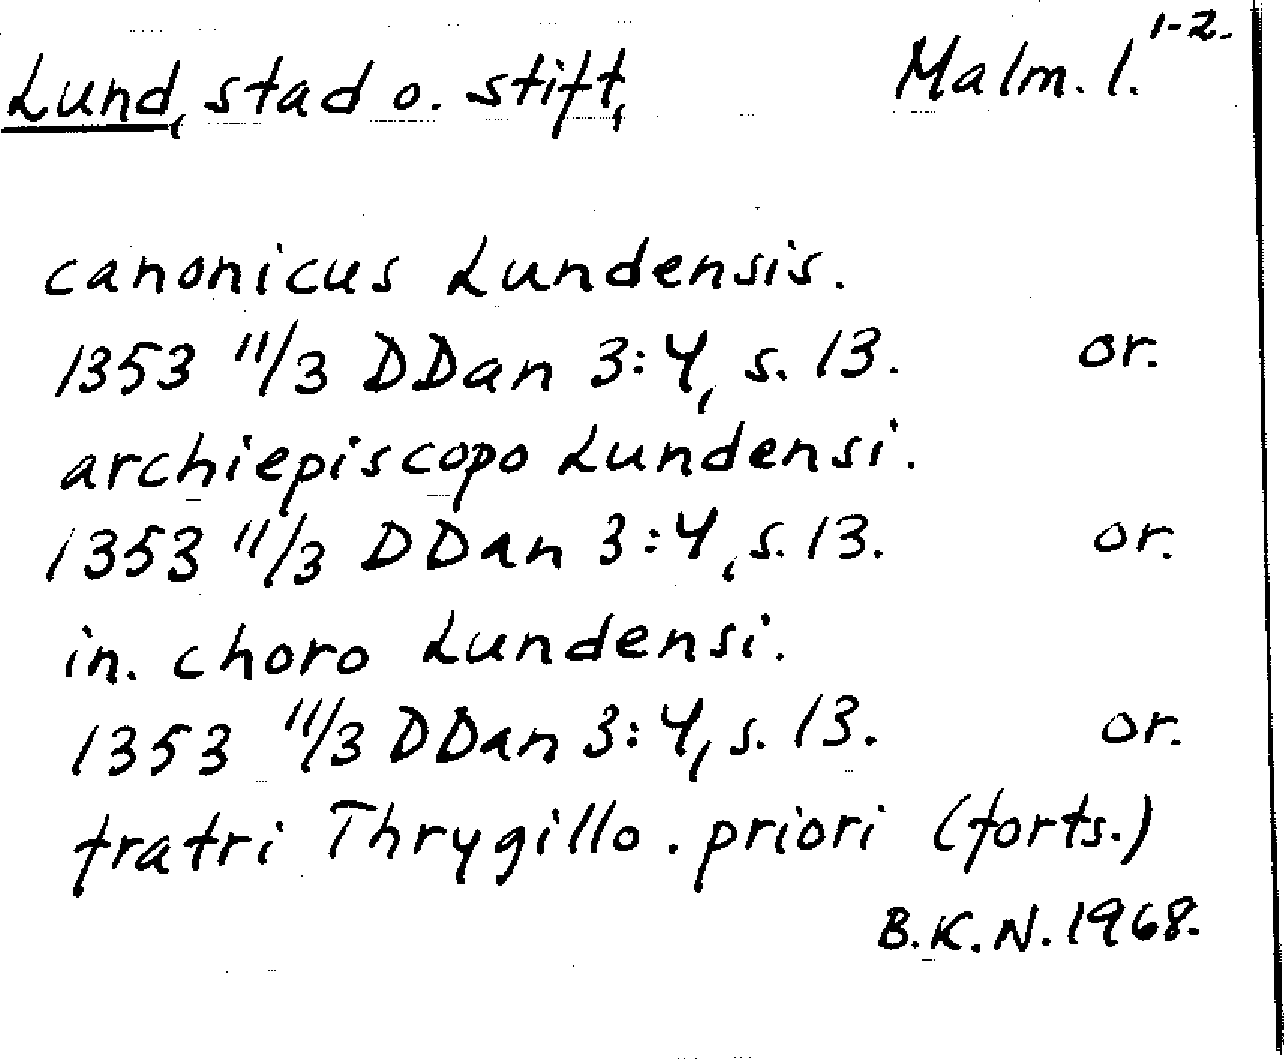 Lund, stad o. stift, Malm. l. 1-2.
canonicus Lundensis.
1353 11/3 DDan 3:4, s. 13. or.
archiepiscopo Lundensi.
1353 11/3 DDan 3:4, s. 13. or.
in. choro Lundensi.
1353 11/3 DDan 3:4, s. 13. or.
fratri Thrygillo. priori (forts.)
B.K.N. 1968.